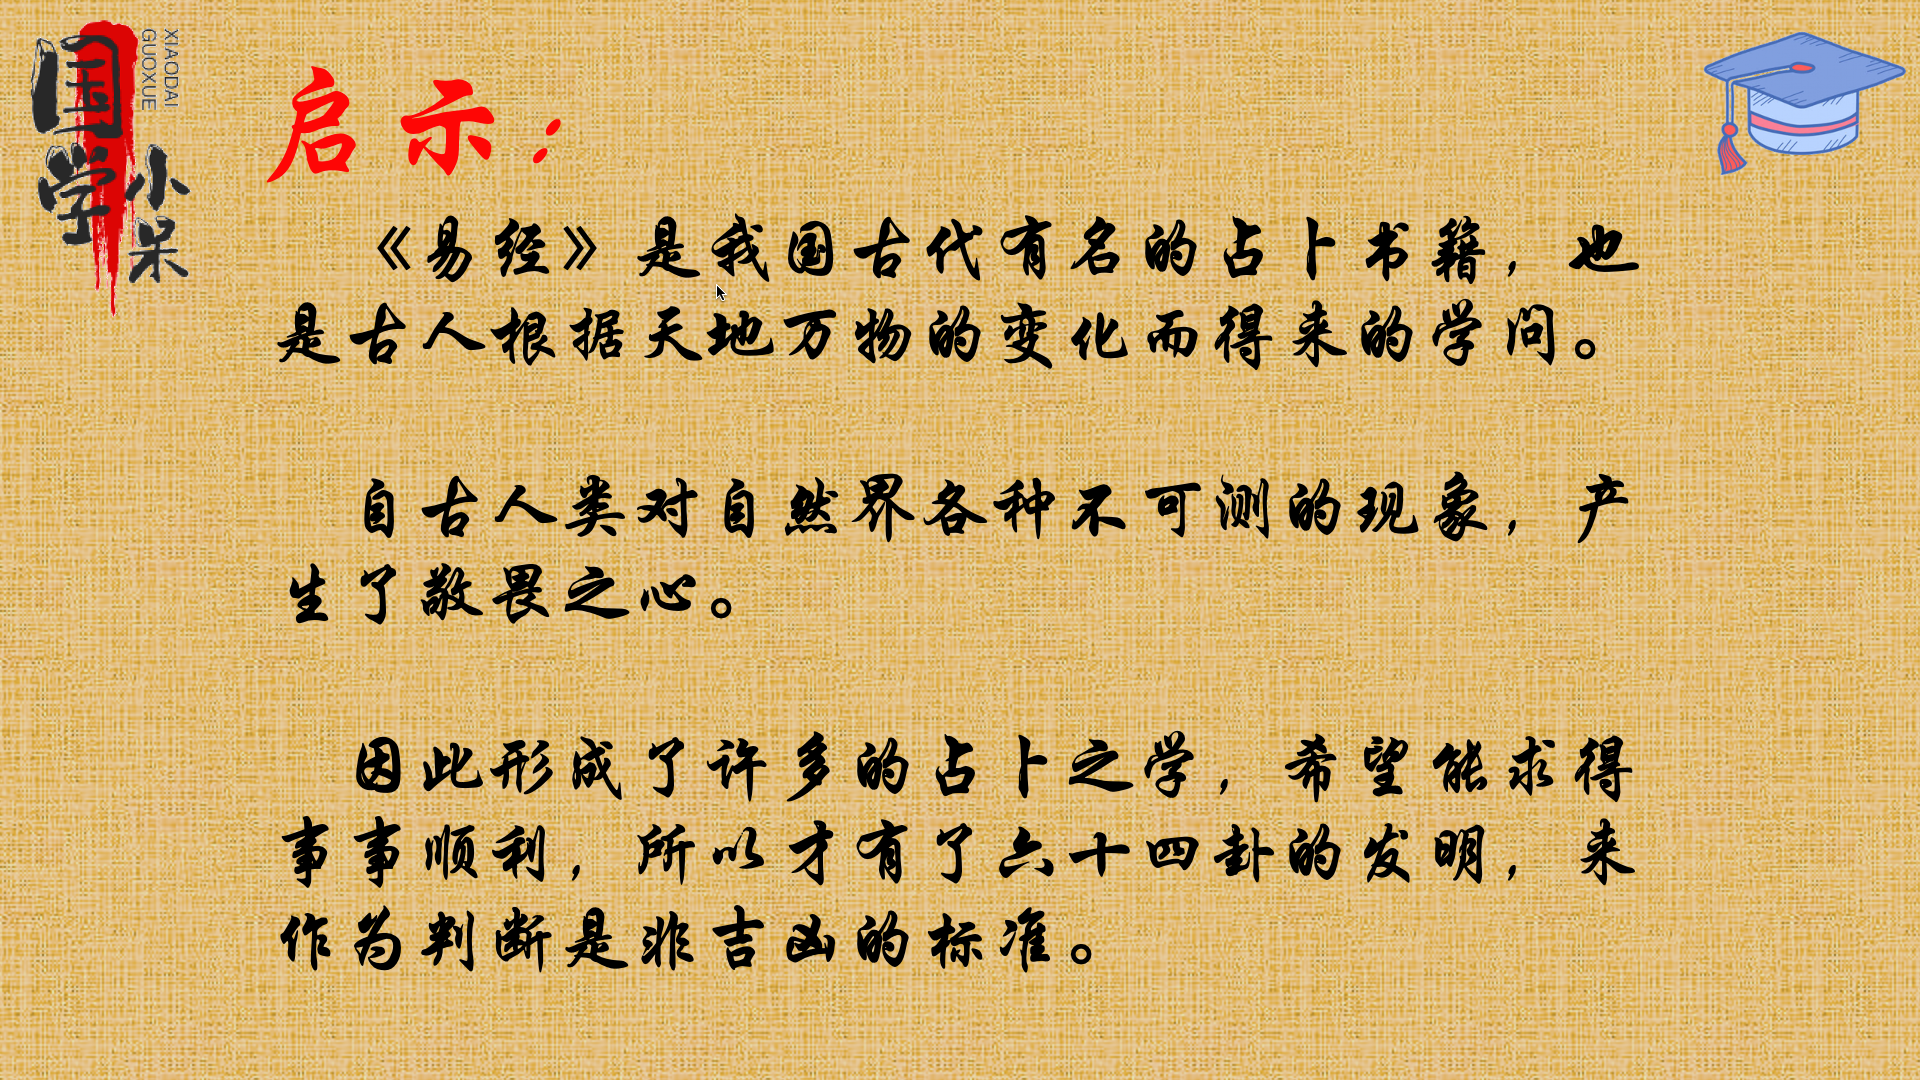 国学小呆
XIAODAI
GUOXUE
启示：
《易经》是我国古代有名的占卜书籍，也
是古人根据天地万物的变化而得来的学问。
自古人类对自然界各种不可测的现象，产
生了敬畏之心。
因此形成了许多的占卜之学，希望能求得
事事顺利，所以才有了六十四卦的发明，来
作为判断是非吉凶的标准。